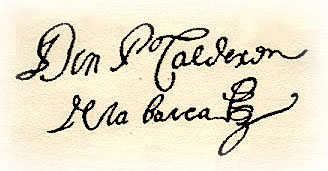 Don Pº Calderon
de la barca